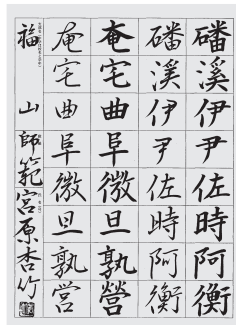 磻溪伊尹佐時阿衡
磻溪伊尹佐時阿衡
奄宅曲阜微旦孰營
奄宅曲阜微旦孰営
福山 師範 宮原杏竹